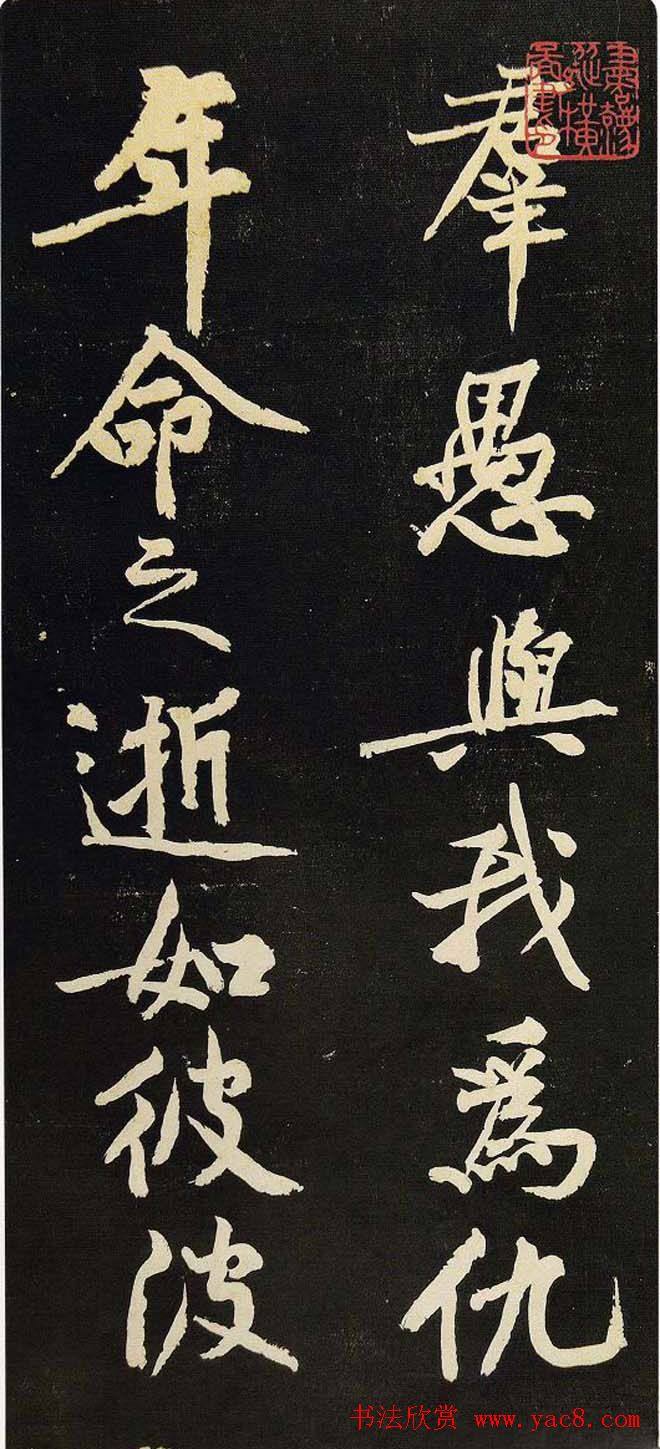 羣愚與我為仇
年命之逝如彼波
书法欣赏 www.yac8.com